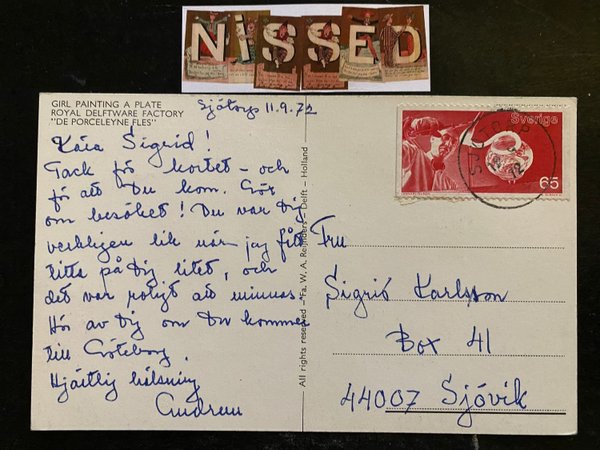 NiSSED
GIRL PAINTING A PLATE
ROYAL DELFTWARE FACTORY
"DE PORCELEYNE FLES"
Sjötorp 11.9.72
Kära Sigrid!
Tack fö kortet - och
fö att Du kom. Gör
om besöket! Du var Dig
verkligen lik när jag fått
titta på Dig litet, och
det var roligt att minnas.
Hör av Dig om Du kommer
till Göteborg.
Hjärtlig hälsning,
Gudrun
All rights reserved - Fa. W. A. Reijnders - Delft - Holland
Sverige
65
72
Fru
Sigrid Karlsson
Box 41
44007 Sjövik